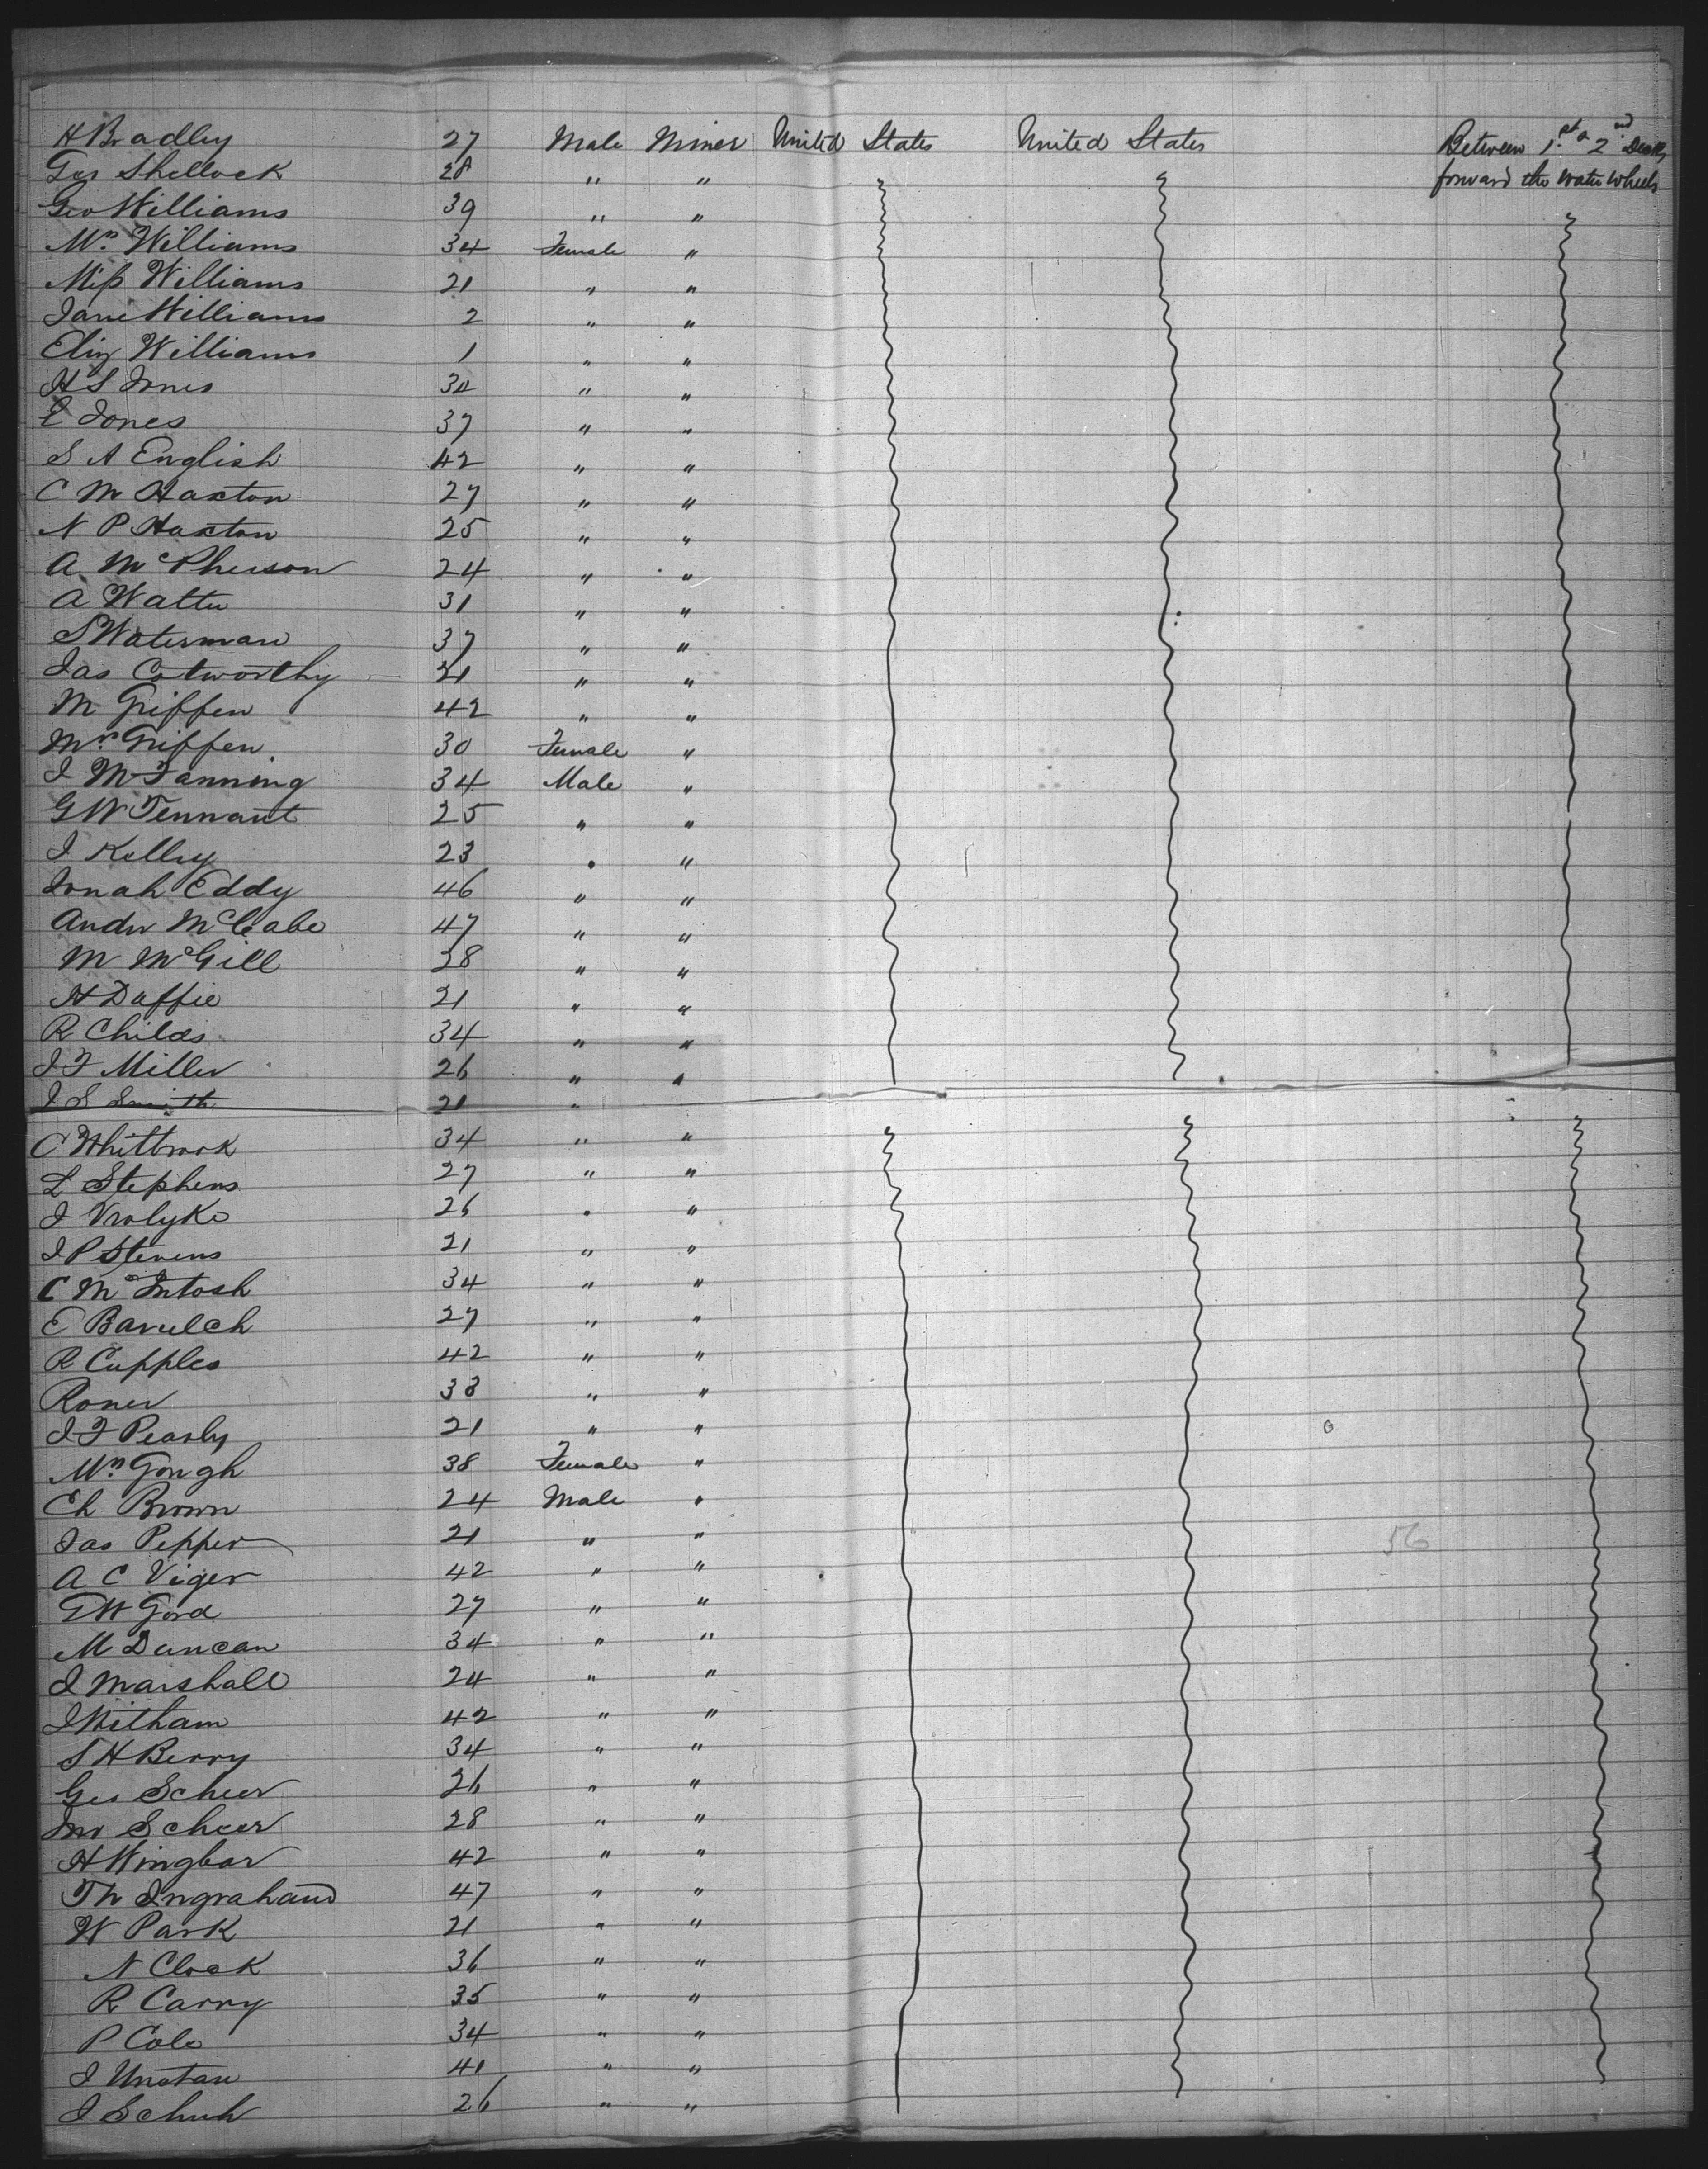 H Bradley 27 Male Miner United States United States Between 1st & 2nd Decks
Geo Shellock 28 " " forward the water wheels
Geo Williams 39 " "
Mrs Williams 34 Female "
Miss Williams 21 " "
Jane Williams 2 " "
Eliz Williams 1 " "
H S Jones 34 " "
E Jones 37 " "
S A English 42 " "
C M Haxton 27 " "
N P Haxton 25 " "
A McPherson 24 " "
A Watter 31 " "
S Waterman 37 " "
Jas Cotworthy 31 " "
M Griffen 42 " "
Mrs Griffen 30 Female "
J M Fanning 34 Male "
G W Tennant 25 " "
J Kelley 23 " "
Jonah Eddy 46 " "
Andw McCabe 47 " "
M McGill 28 " "
H Duffie 21 " "
R Childs 34 " "
J F Miller 26 " "
J S Smith 21 "
C Whitbrook 34 " "
L Stephens 27 " "
J Vrolyke 26 " "
J P Stevens 21 " "
C McIntosh 34 " "
E Barulch 27 " "
R Cupples 42 " "
Roner 33 " "
J F Pearly 21 " "
Mrs Gough 38 Female "
Ch Brown 24 Male "
Jas Pepper 21 " " 56
A C Viger 42 " "
G W Gord 27 " "
M Duncan 34 " "
J Marshall 24 " "
J Witham 42 " "
S H Berry 34 " "
Geo Scheer 26 " "
Jno Scheer 28 " "
H Wingbar 42 " "
Th Ingraham 47 " "
W Park 21 " "
N Clock 36 " "
R Carry 35 " "
P Cole 34 " "
J Unstan 41 " "
J Schuh 26 " "